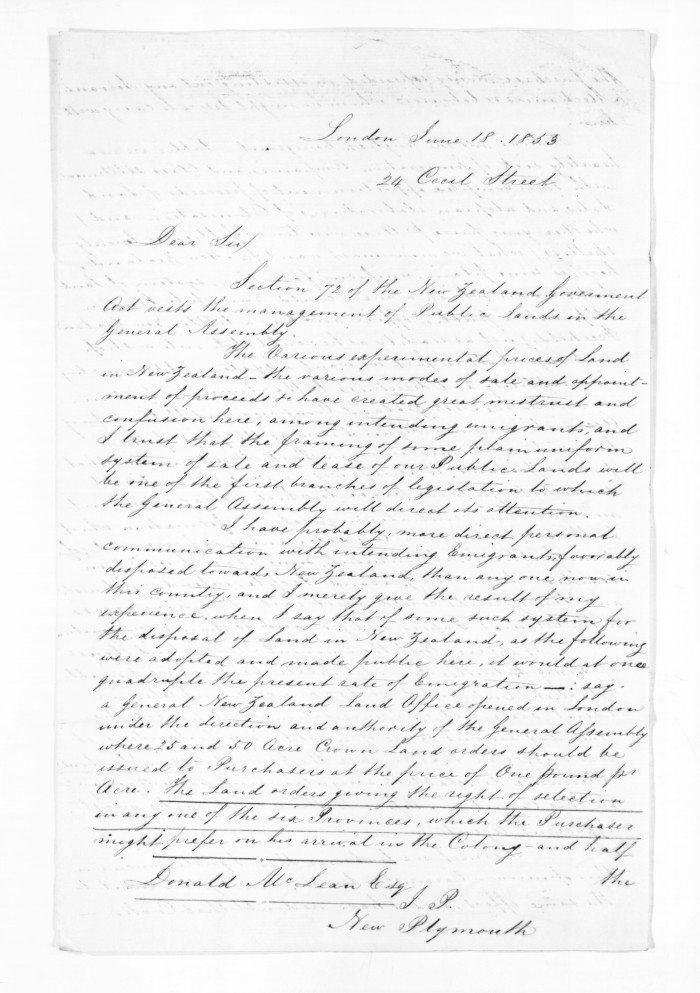 London June 18. 1853
24 Cecil Street
Dear Sir/
Section 72 of the New Zealand Goverment
Act vests the management of Public Lands in the
General Assembly.
The Various experimental prices of Land
in New Zealand - the various modes of sale and appoint-
ment of proceeds &c have created great mistrust and
confusion here, among intending emigrants, and
I trust that the framing of some plain uniform
system of sale and lease of our Public Lands will
be one of the first branches of legistation to which
the General Assembly will direct its attention.
I have probably, more direct personal
communication with intending Emigrants, favorably
disposed towards New Zealand, than any one now in
this country, and I merely give the result of my
experience, when I say that if some such system for
the disposal of Land in New Zealand, as the following
were adopted and made public here, it would at once
quadruple the present rate of Emigration —: say.
a General New Zealand Land Office opened in London
under the direction and authority of the General Assembly
where 25 and 50 Acre Crown Land orders should be
issued to Purchasers at the price of One pound pr
Acre. The Land orders giving the right of selection
in any one of the six Provinces, which the Purchaser
might prefer on his arrival in the Colony - and half
the
Donald McLean Esq
J. P.
New Plymouth